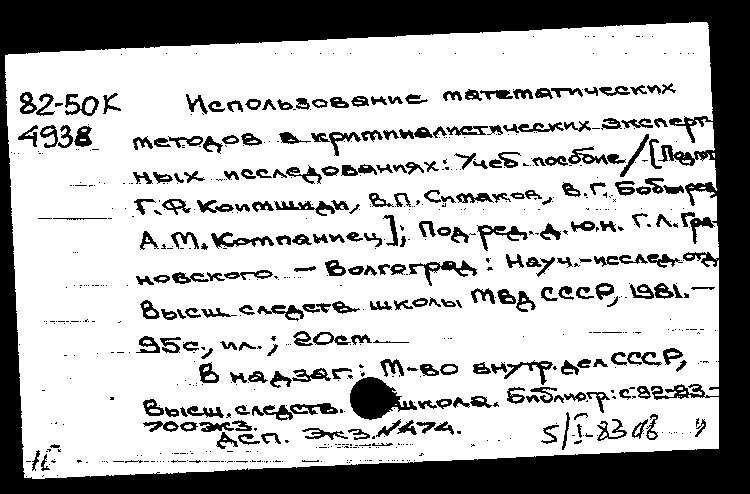 82-50К
4938
Использование математических
методов в криминалистических эксперт-
ных исследованиях: Учеб. пособие / [Подгот.
Г.Ф. В.П. Симаков, В.Г. Бобырев,
А.М. Компаниец]; Под ред. д.ю.н. Г.Л. Гра-
новского. — Волгоград: Науч.-исслед. отд.
Высш. следств. школы МВД СССР, 1981. —
95с., ил.; 20см.
В надзаг.: М-во внутр. дел СССР,
Высш. следств. школа. Библиогр: с.92-93. —
700экз.
ДСП. Экз. №474.
5/I-83